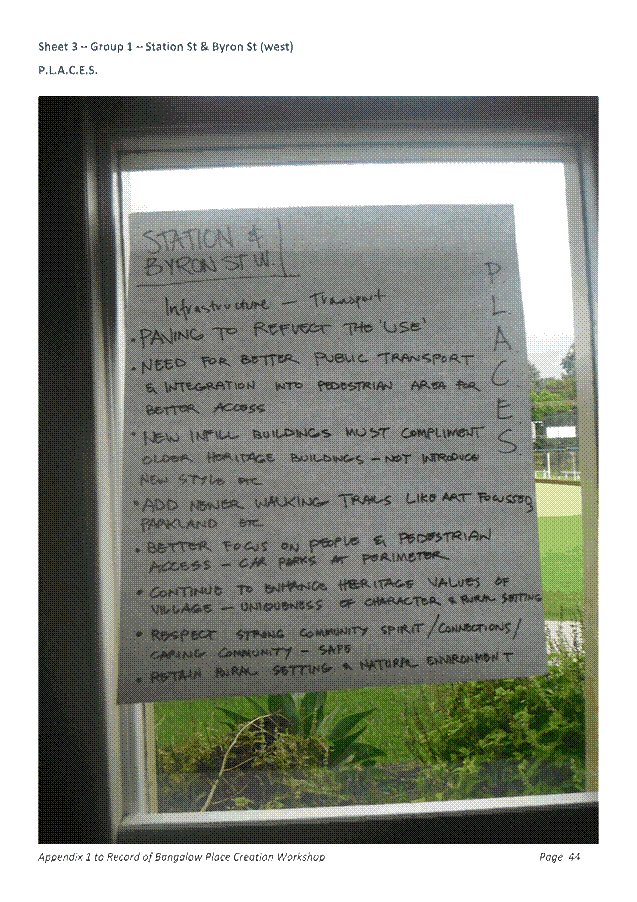 Sheet 3 -- Group 1 -- Station St & Byron St (west)
P.L.A.C.E.S.
STATION &
BYRON ST W.
P.
L.
A.
C.
E.
S.
Infrastructure — Transport
• PAVING TO REFLECT THE 'USE'
• NEED FOR BETTER PUBLIC TRANSPORT
& INTEGRATION INTO PEDESTRIAN AREA FOR
BETTER ACCESS
• NEW INFILL BUILDINGS MUST COMPLIMENT
OLDER HERITAGE BUILDINGS – NOT INTRODUCE
NEW STYLE ETC
• ADD NEWER WALKING TRAILS LIKE ART FOCUSSED
PARKLAND ETC
• BETTER FOCUS ON PEOPLE & PEDESTRIAN
ACCESS – CAR PARKS AT PERIMETER
• CONTINUE TO ENHANCE HERITAGE VALUES OF
VILLAGE – UNIQUENESS OF CHARACTER & RURAL SETTING
• RESPECT STRONG COMMUNITY SPIRIT/CONNECTIONS/
CARING COMMUNITY – SAFE
• RETAIN RURAL SETTING & NATURAL ENVIRONMENT
Appendix 1 to Record of Bangalow Place Creation Workshop
Page 44